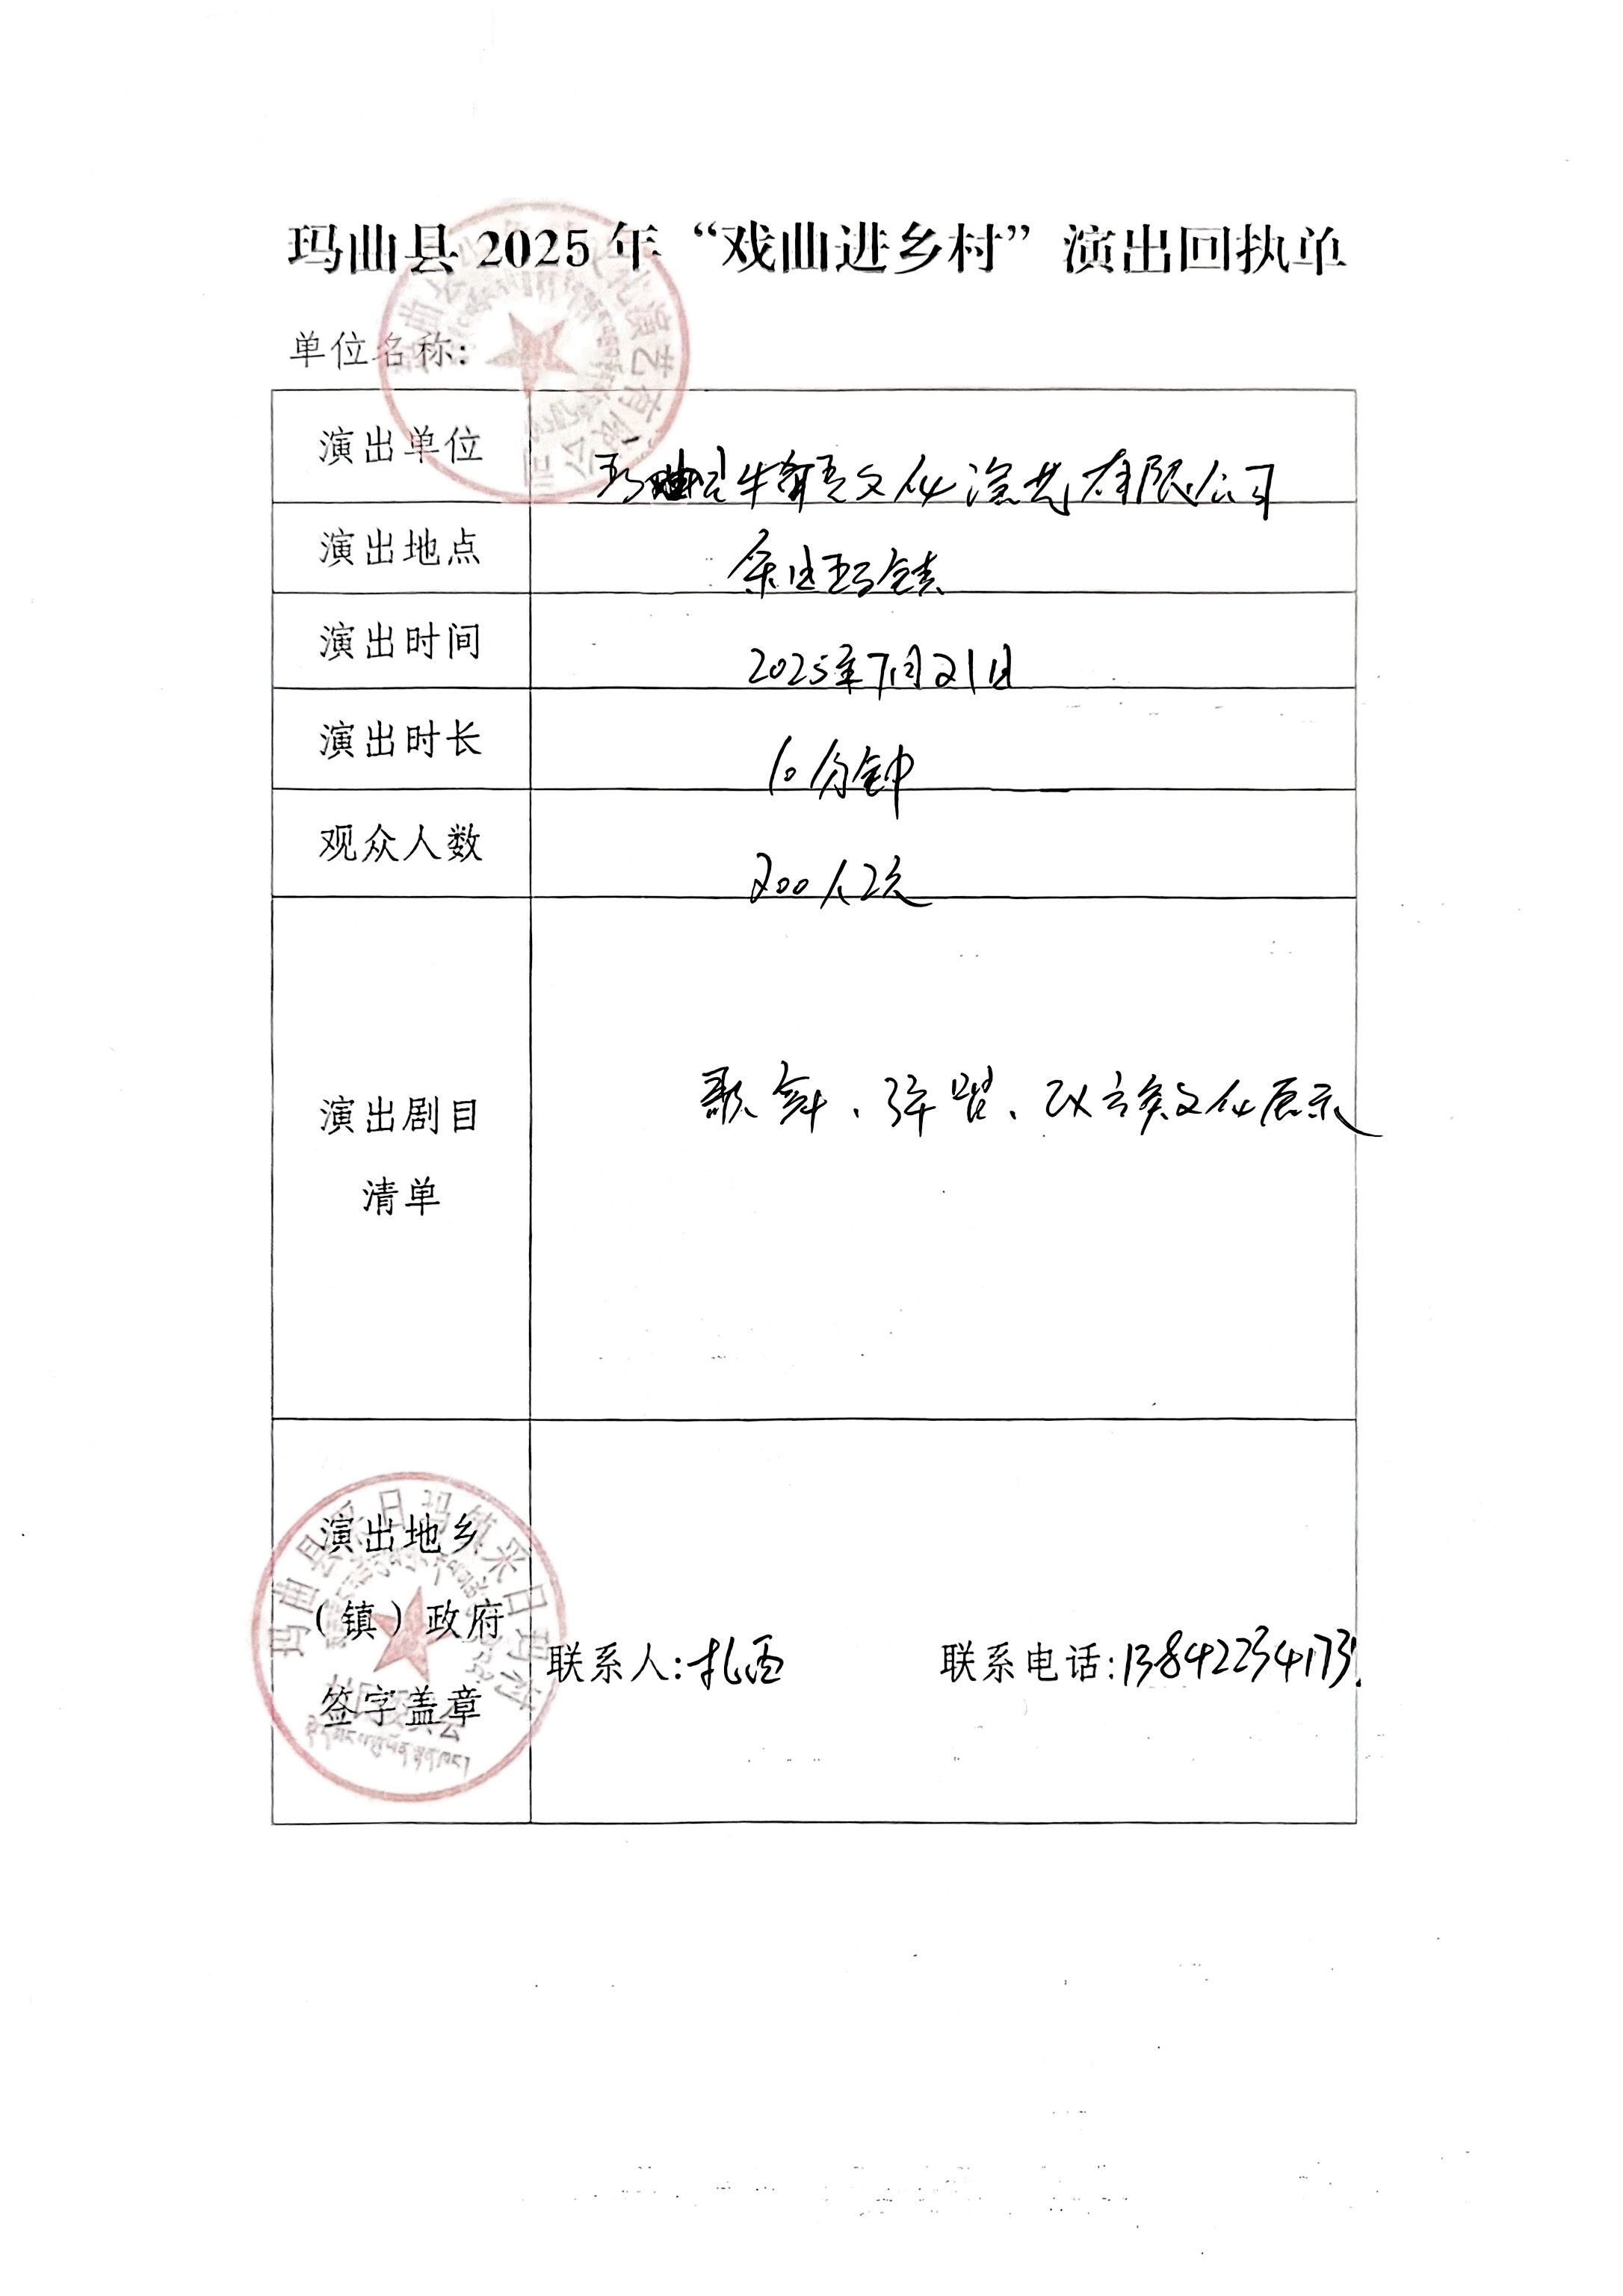 玛曲县 2025 年 “戏曲进乡村” 演出回执单
单位名称:
演出单位
文化演艺有限公司
演出地点
采日玛镇
演出时间
2025年7月21日
演出时长
60分钟
观众人数
200人次
演出剧目
清单
歌舞、弹唱、民族文化展示
玛曲县采日玛镇采日玛村
演出地乡
(镇)政府
签字盖章
联系人:扎西
联系电话: